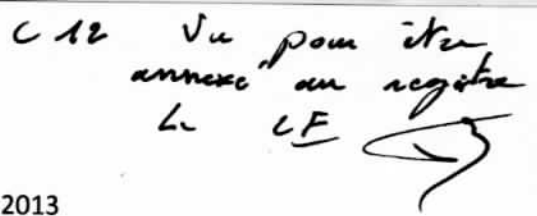 C 12 Vu pour être
annexé au registre
Le CE
2013